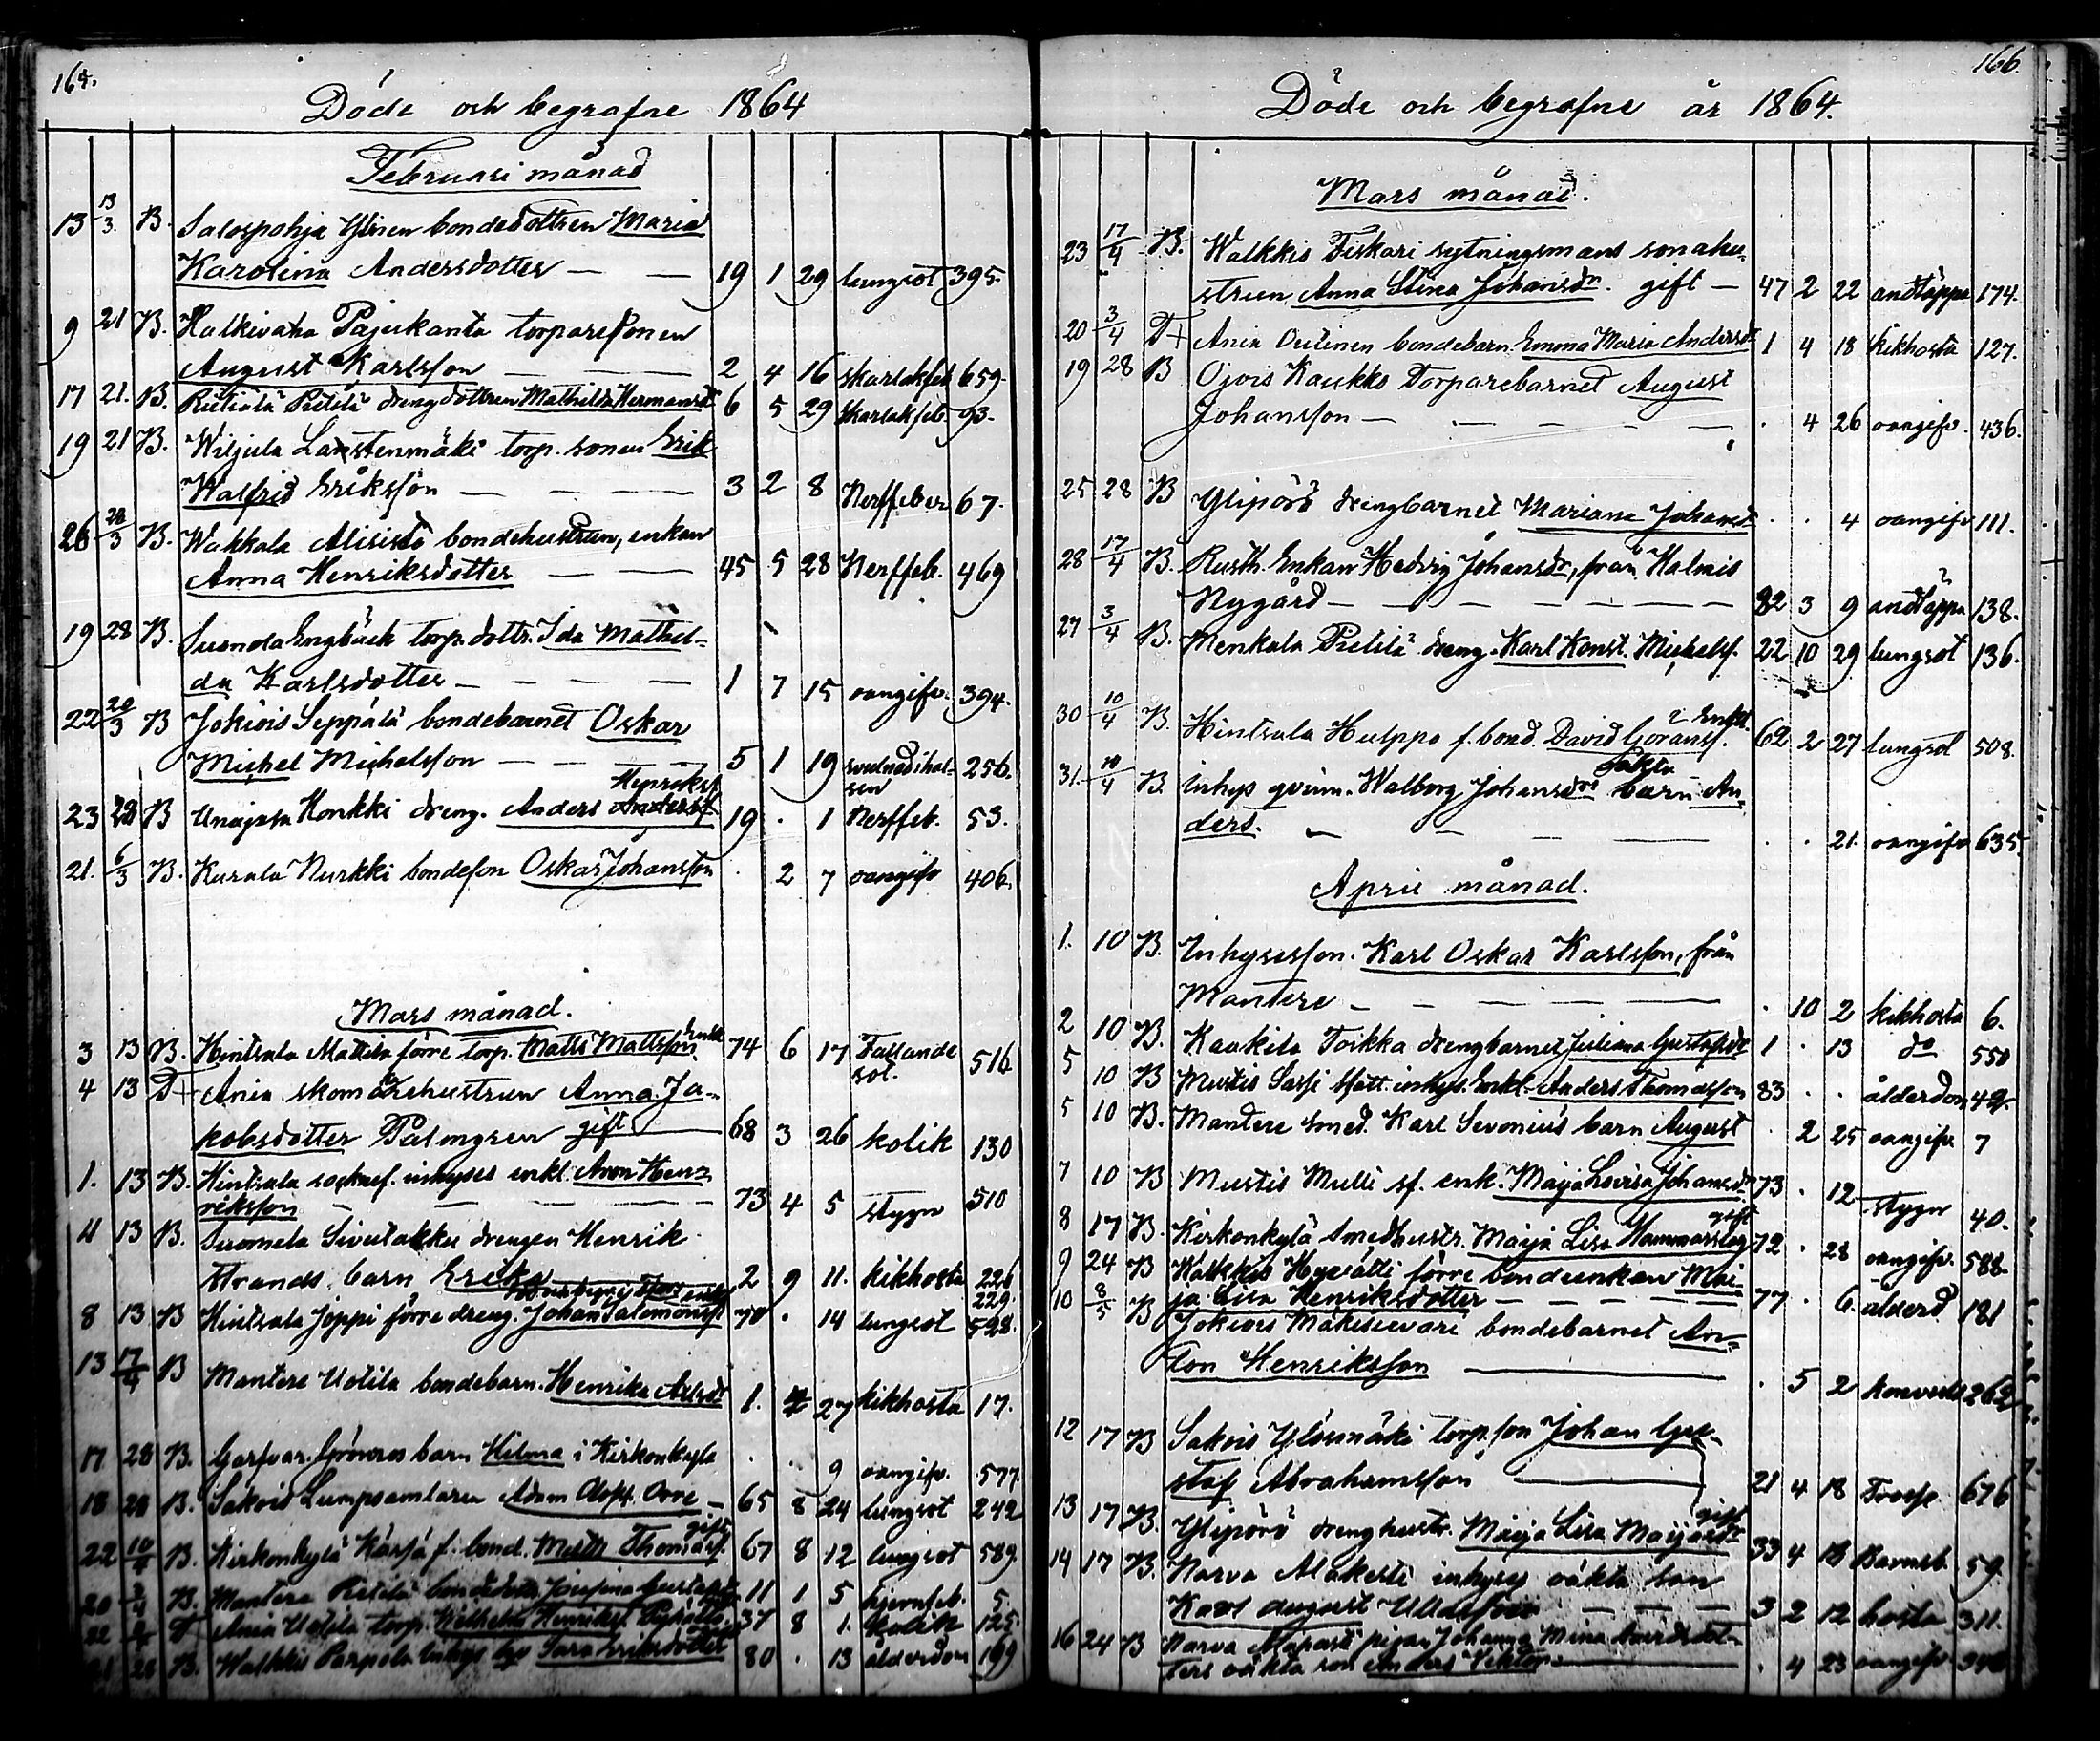 165.
Döde och begrafne 1864
Februari månad
13 13/3 B. Salospohja Ylinen bondedottren Maria
Karolina Andersdotter — — 19 1 29 lungsot 395.
9 21 B. Halkivaha Pajukanta torparesonen
August Karlsson — — 2 4 16 skarlakfeb 659.
17 21. B. Rutiala Pietilä drengdottren Mathilda Hermansd 6 5 29 skarlakfeb. 93.
19 21 B. Wiljula torp. sonen Erik
Walfrid Eriksson — — — 3 2 8 Nerffeber 67.
26 20/3 B. Wakkala Alisisto bondehustrun, enkan
Anna Henriksdotter — — 45 5 28 Nerffeb. 469
19 28 B. Suonda Engbäck torp. dottr. Ida Mathil-
da Karlsdotter — — — 1 7 15 oangifv. 394.
22 20/3 B Jokiois Seppälä bondebarnet Oskar
Michel Michelsson — — — 5 1 19 svulnad i hal- 256.
sen
Henrikss.
23 28 B Unajasa Honkki dreng. Anders Anderss. 19 . 1 Nerffeb. 53.
21. 6/3 B. Kurala Nurkki bondeson Oskar Johansson . 2 7 oangifv 406.
Mars månad.
3 13 B. Hintsala Mattila förre torp. Matts Mattsson Enkl 74 6 17 Fallande 516
sot.
4 13 D+ Ania skomakrehustrun Anna Ja-
kobsdotter Palmgren gift — 68 3 26 kolik 130
1. 13 B. Hintsala inhyses enkl. Aron Hen-
riksson — — — 73 4 5 stygn 510
11 13 B. Suomela Sivulakka drengen Henrik
Strands barn Erika 2 9 11. kikhosta 226
229.
8 13 B Hintsala Joppi förre dreng. Johan Salomonss. 70 . 14 lungsot 528.
13 17/4 B Mantere Uotila bondebarn. Henrika Axelsdr 1. 4 27 kikhosta 17.
17 28 B. Garfvar. Grönroos barn Hilma i Kirkonkylä . . 9 oangifv. 577.
18 28 B. Sakois Lumpsamlaren Adam Olofss. Orre — 65 8 24 lungsot 242
gift
22 10/4 B. Kirkonkylä Kärsä f. bond. Matts Thomass. 67 8 12 lungsot 589.
20 3/4 B. Mantere Pietilä Josefina Gustafsd. 11 1 5 hjernfeb. 5.
Ania Uotila torp. Wilhelm Henrikss. 37 8 1. kolik 125.
B. Walkkis Parpola inhys Sara Eriksdotter 80 . 13 ålderdom 199
166.
Döde och begrafne år 1864.
Mars månad.
23 17/4 B. Walkkis Fiskari sytningsmans sonahu-
strun Anna Stina Johansdr. gift — 47 2 22 andtäppa 174.
20 3/4 D+ Ania Outinen bondebarn Emma Maria Andersd. 1 4 18 kikhosta 127.
19 28 B Ojois Kaukko Torparebarnet August
Johansson — — — — . 4 26 oangifv. 436.
25 28 B Ylipörö drengbarnet Mariana Johansd. . . 4 oangifv 111.
28 17/4 B. Rusth. Enkan Hedvig Johansdr, från Halmis
Nygård — — — — — 82 3 9 andtäppa 138.
27 3/4 B. Menkala Pietilä dreng. Karl Konst. Michelss. 22 10 29 lungsot 136.
30 10/4 B. Hintsala Hulppo f. bond. David Göranss. Enkl. 62 2 27 lungsot 508.
oäkta
31. 10/4 B. Inhys qvinn. Walborg Johansdrs barn An-
ders. — — — . . 21. oangifv 635.
April månad.
1. 10 B. Inhysesson. Karl Oskar Karlsson, från
Mantere — — — — . 10 2 kikhosta 6.
2 10 B. Kaakila Toikka drengbarnet Juliana Gustafsdr 1 . 13 do 550
5 10 B Mustis Sassi fatt. inhys. Enkl. Anders Thomasson 83 . . ålderdom 42.
5 10 B. Mantere smed. Karl Sevonius barn August . 2 25 oangifv 7
7 10 B Mustis Mulli sf. enk. Maja Lovisa Johansdr 73 . 12 stygn 40.
gift
8 17 B. Kirkonkylä Smedhustr. Maija Lisa Hammarsten 72 . 28 oangifv. 588.
9 24 B Walkkis Hyvätti förre bondeenkan Mai-
ja Lisa Henriksdotter — — — 77 . 6. ålderd 181
10 8/5 B Jokiois bondebarnet An-
ton Henriksson — . 5 2 Konvuls 262
12 17 B Sakois Ylösmäki torp. son Johan Gu-
staf Abrahamsson — 21 4 18 Trosse 676
gift
13 17 B. Ylipörö drenghustr. Maija Lisa 33 4 18 Barnsb. 59.
14 17 B. Narva Alakesti inhyses oäkta son
Karl August — — — 3 2 12 hosta 311.
16 24 B Narva pigan Johanna Mina
ters oäkta son Anders Viktor — . 4 23 oangifv.